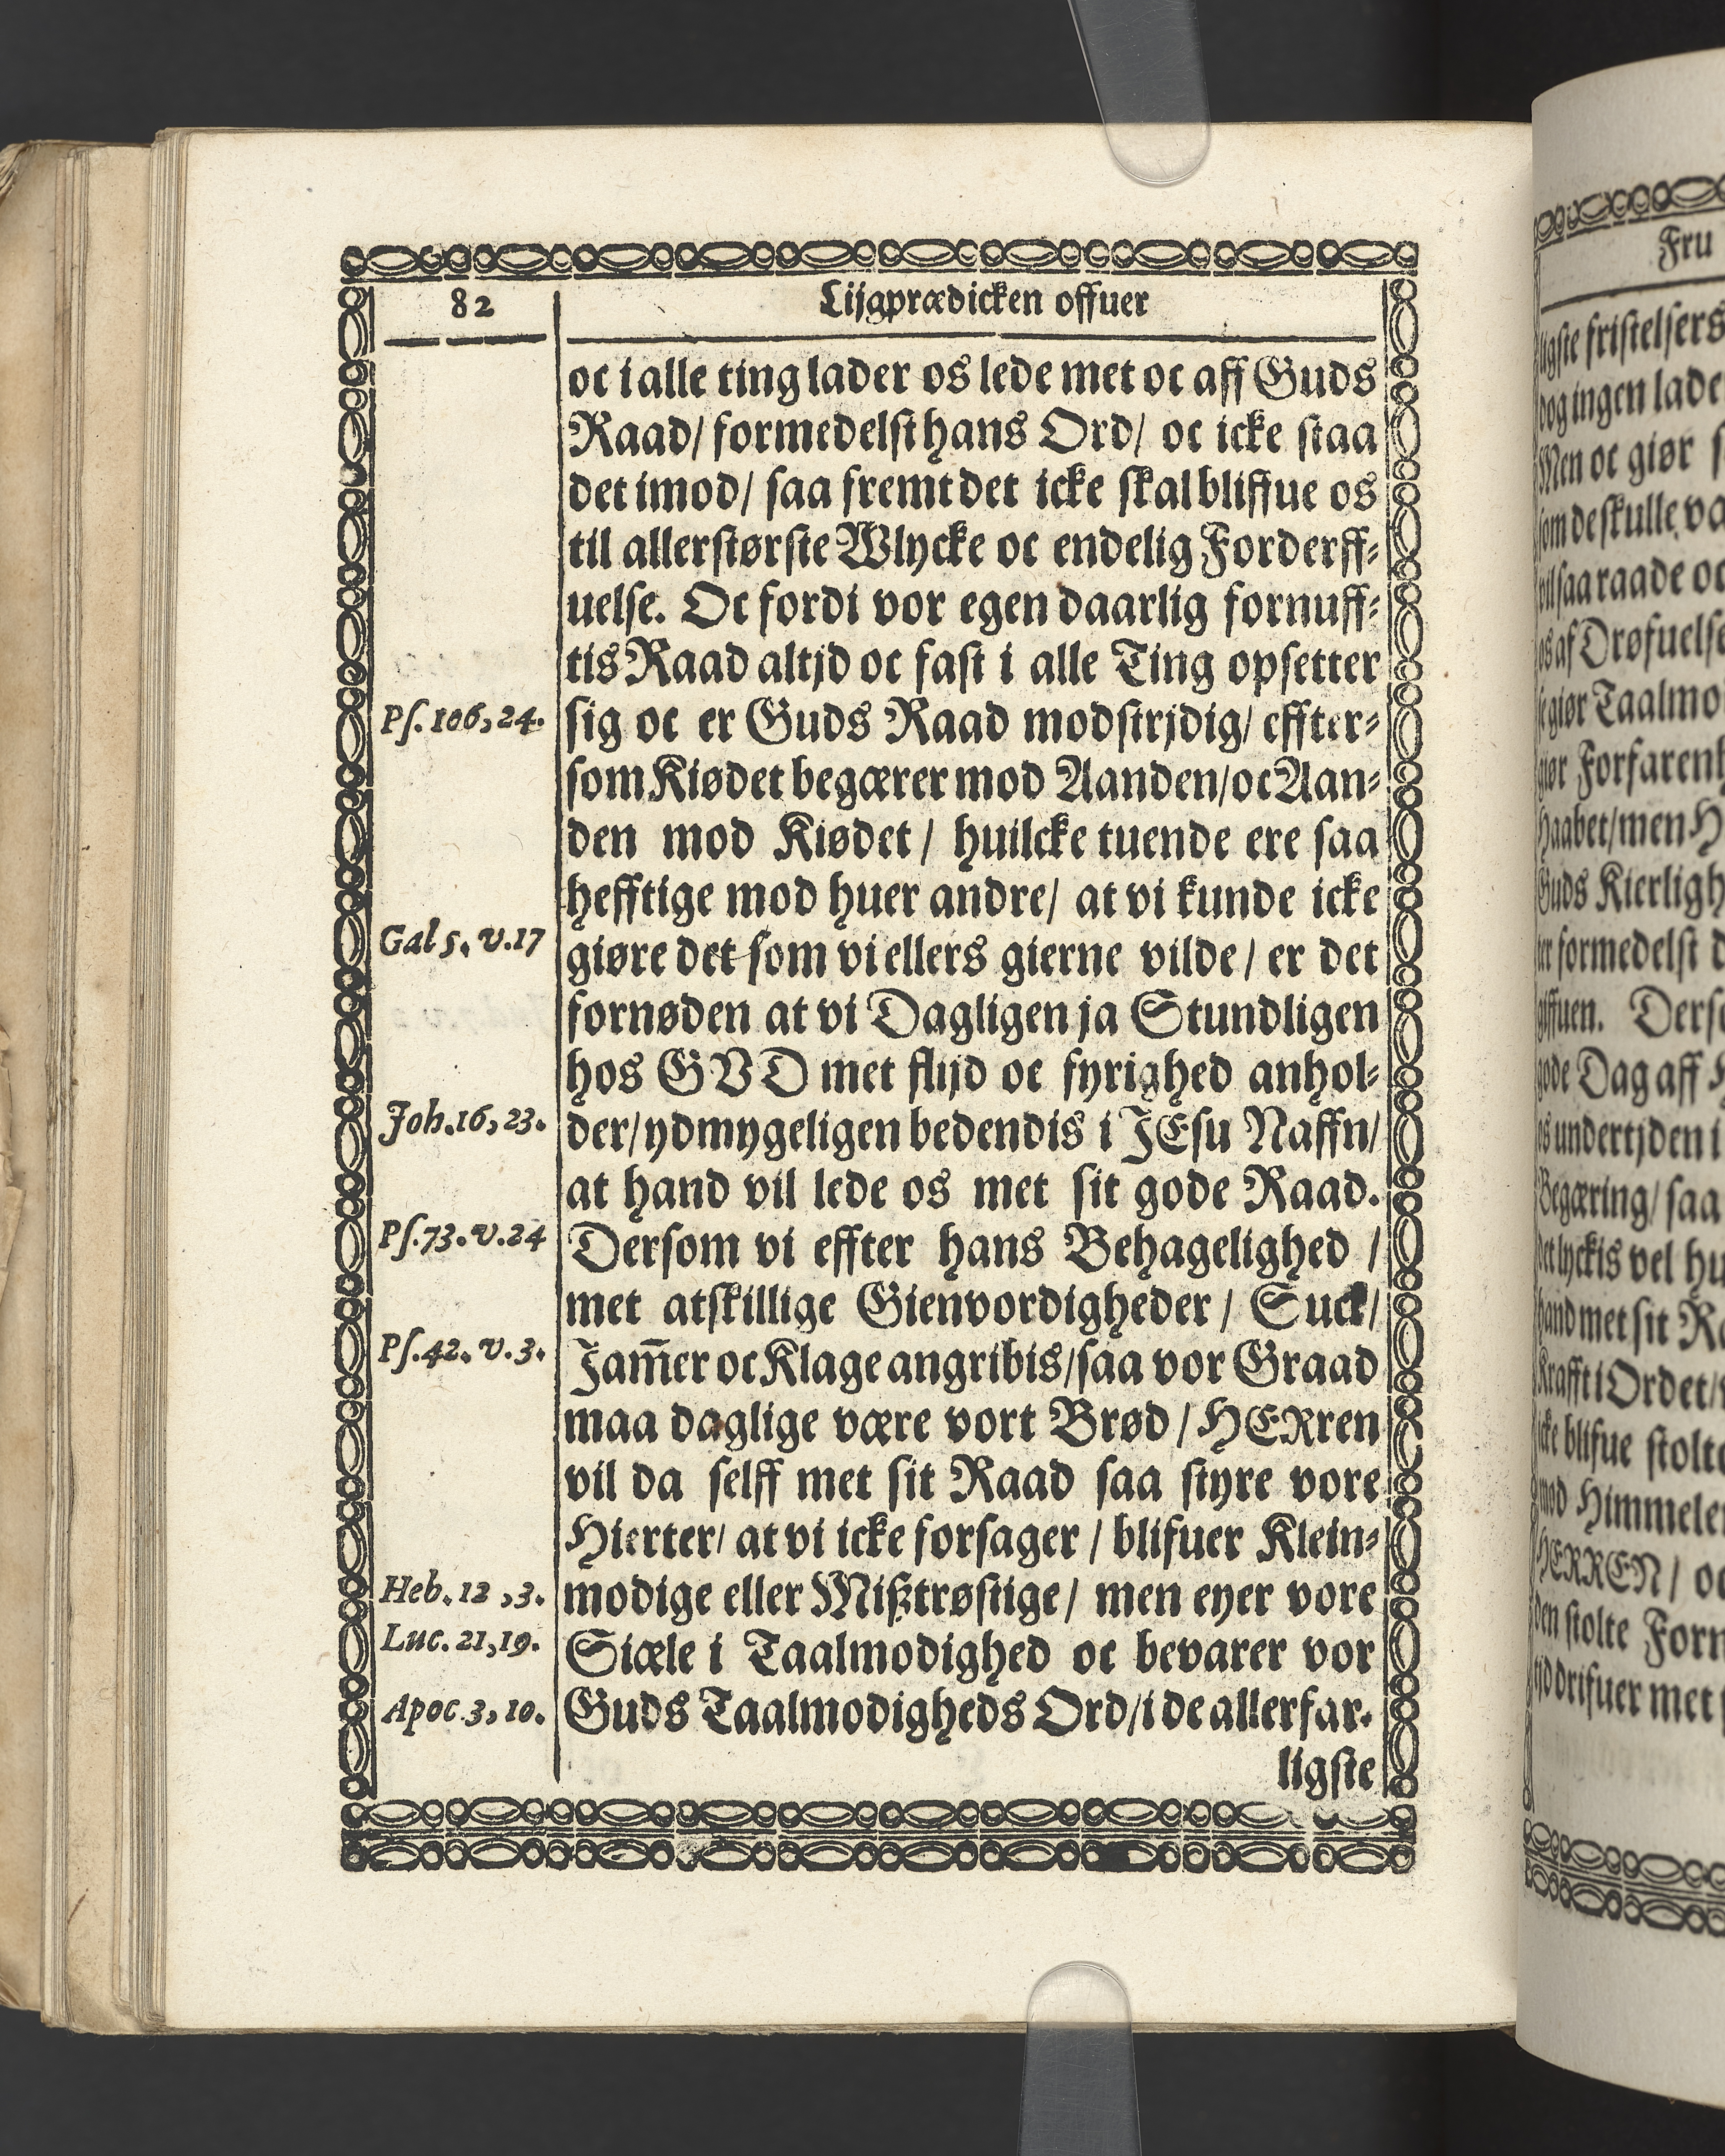 82
Lijgprædicken offuer
oc i alle ting lader os lede met oc aff Guds
Raad/ formedelst hans Ord/ oc icke staa
det imod/ saa fremt det icke skal bliffue os
til allerstørste Wlycke oc endelig Forderff-
uelse. Oc fordi vor egen daarlig fornuff-
tis Raad altjd oc fast i alle Ting opsetter
Ps. 106, 24.
sig oc er Guds Raad modstrjdig/ effter-
som Kiødet begærer mod Aanden/ oc Aan-
den mod Kiødet/ huilcke tuende ere saa
hefftige mod huer andre/ at vi kunde icke
Gal 5. v. 17
giøre det som vi ellers gierne vilde/ er det
fornøden at vi Dagligen ja Stundligen
hos GVD met flijd oc fyrighed anhol-
Joh. 16, 23.
der/ ydmygeligen bedendis i JEsu Naffn/
at hand vil lede os met sit gode Raad.
Ps. 73. v. 24
Dersom vi effter hans Behagelighed /
met atskillige Gienvordigheder / Suck/
Ps. 42. v. 3.
Jam̃er oc Klage angribis/ saa vor Graad
maa daglige være vort Brød / HERren
vil da selff met sit Raad saa styre vore
Hierter/ at vi icke forsager / blifuer Klein-
Heb. 12, 3.
modige eller Mißtrøstige/ men eyer vore
Luc. 21, 19.
Siæle i Taalmodighed oc bevarer vor
Apoc 3, 10.
Guds Taalmodigheds Ord/ i de allerfar-
ligste
Fru
ligste fristelsers
dog ingen lade
Men oc giør
som de skulle
vil saa raade oc
os af Drøfuelse
giør Taalmo
giør Forfarenh
Haabet/ men H
Guds Kierligh
formedelst d
giffuen. Derso
gode Dag aff
os undertjden i
Begæring/ saa
det lyckis vel hu
hand met sit Ra
Krafft i Ordet/
icke blifue stolte
mod Himmelen
HERREN/ oc
den stolte Forn
drifuer met